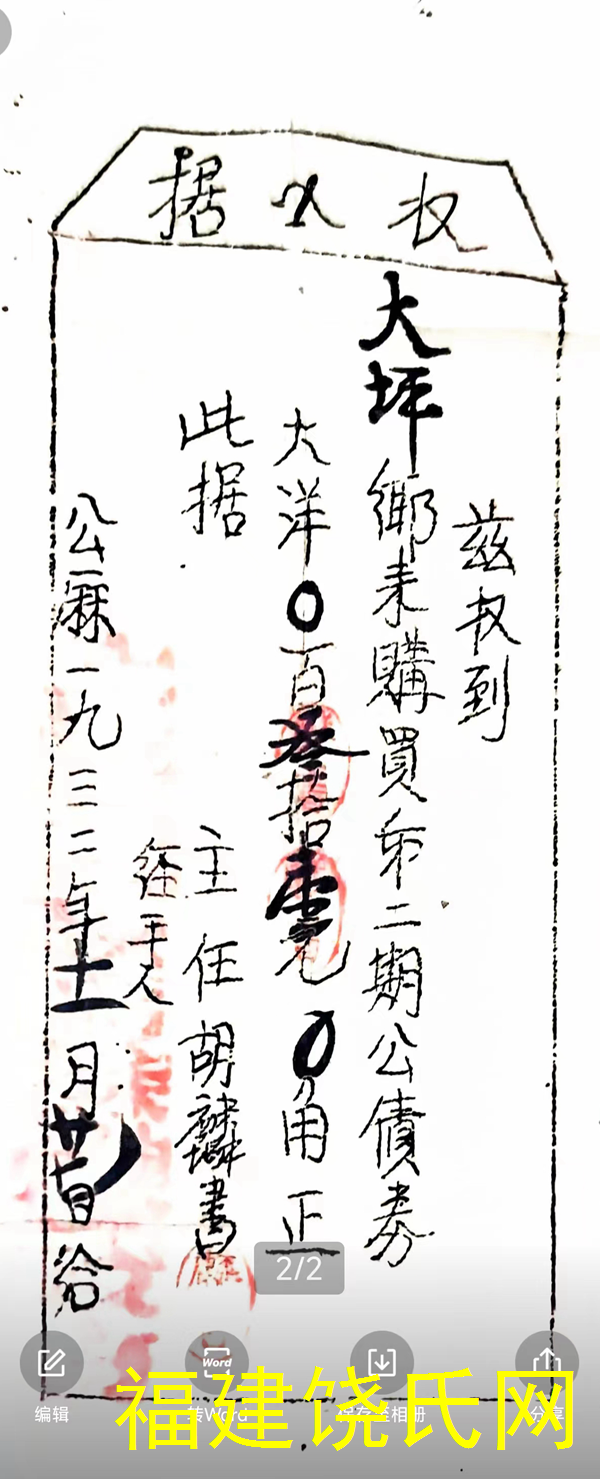 收入据
兹收到
大坪鄉来購買第二期公債券
大洋0百叁拾元0角正
此据
主任胡麟書
经手人
公厤一九三二年十一月廿日给
2/2
Word
编辑
转Word
保存至相册
分享
福建饶氏网